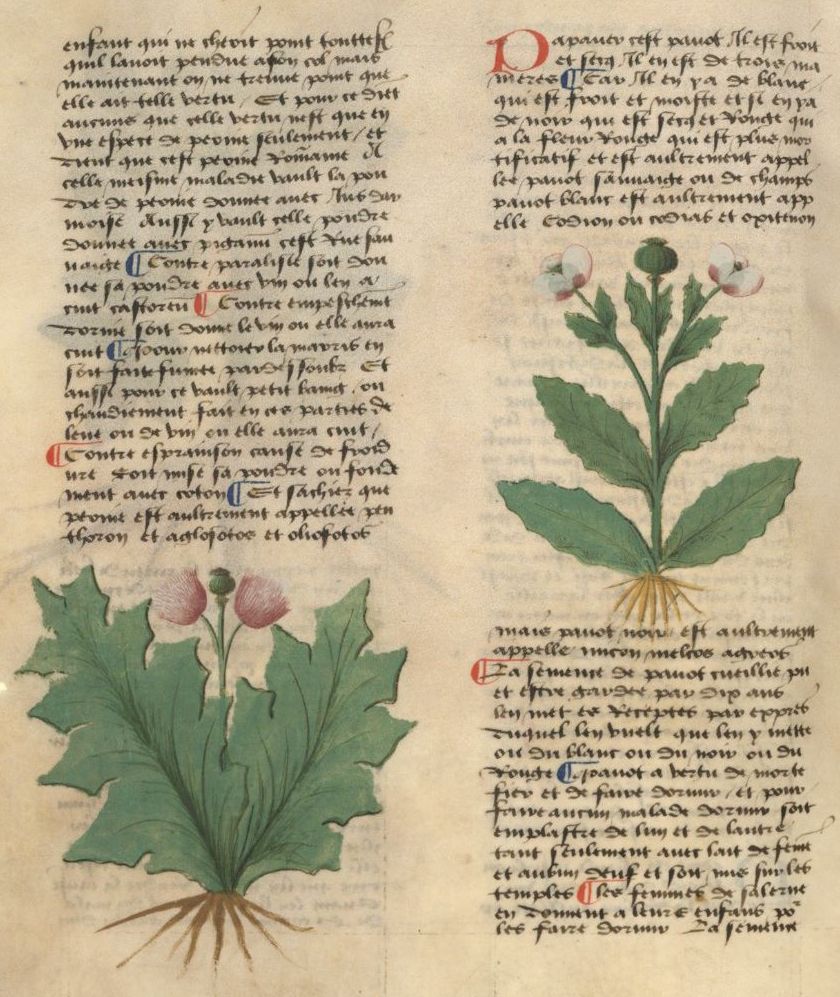 enfant qui ne cheoit point touttefs
quil lauoit pendue a son col mais
maintenant on ne treuue point que
elle ait telle vertu / Et pour ce diet
aucuns que celle vertu nest que en
vne espece de peonie seulement / et
dient que cest peonie Romaine A
celle meisme maladie vault la pou
dre de peonie donnee auec Jus dar
moise Aussi y vault celle pouldre
donnee auec pigami cest Rue sau
uaige ¶ Contre paralisie soit don
nee sa pouldre auec vin ou len a
cuit castoreu ¶ Contre empeschemt
dorine soit donne le vin ou elle aura
cuit ¶ Pour nettoier la marris en
soit faite fumee par dessoubz Et
aussi pour ce vault petit baing ou
chaudiement fait en ces parties de
leue ou de vin ou elle aura cuit /
¶ Contre espraintson cause de froid
ure Soit mise sa pouldre ou fonde
ment auec coton ¶ Et sachiez que
peonie est aultrement appellee pen
thoron et aglofotos et oliofotos
Papauer cest pauot Il est froit
et secq Il en est de trois ma
nieres ¶ Car Il en y a de blanc
qui est froit et moiste et si en ya
de noir qui est secq et Rouge qui
a la fleur Rouge qui est plus mor
tificatif et est aultrement appel
lee pauot sauuaige ou de champs
pauot blanc est aultrement app
elle Codion ou codias et oxitenon
mais pauot noir est aultrement
appelle micon melcos agreos
¶ La semence de pauot cueillie pu
et estre gardee par dix ans
len met es Receptes par expres
duquel len vuelt que len y mette
ou du blanc ou du noir ou du
Rouge ¶ Pauot a vertu de morte
fier et de faire dormir / et pour
faire aucun malade dormir soit
emplastre de lun et de lautre
tant seulement auec lait de feme
et aubun deuf et soit mis sur les
temples ¶ les femmes de salerne
en donnent a leurs enfans po
les faire dormir La semence